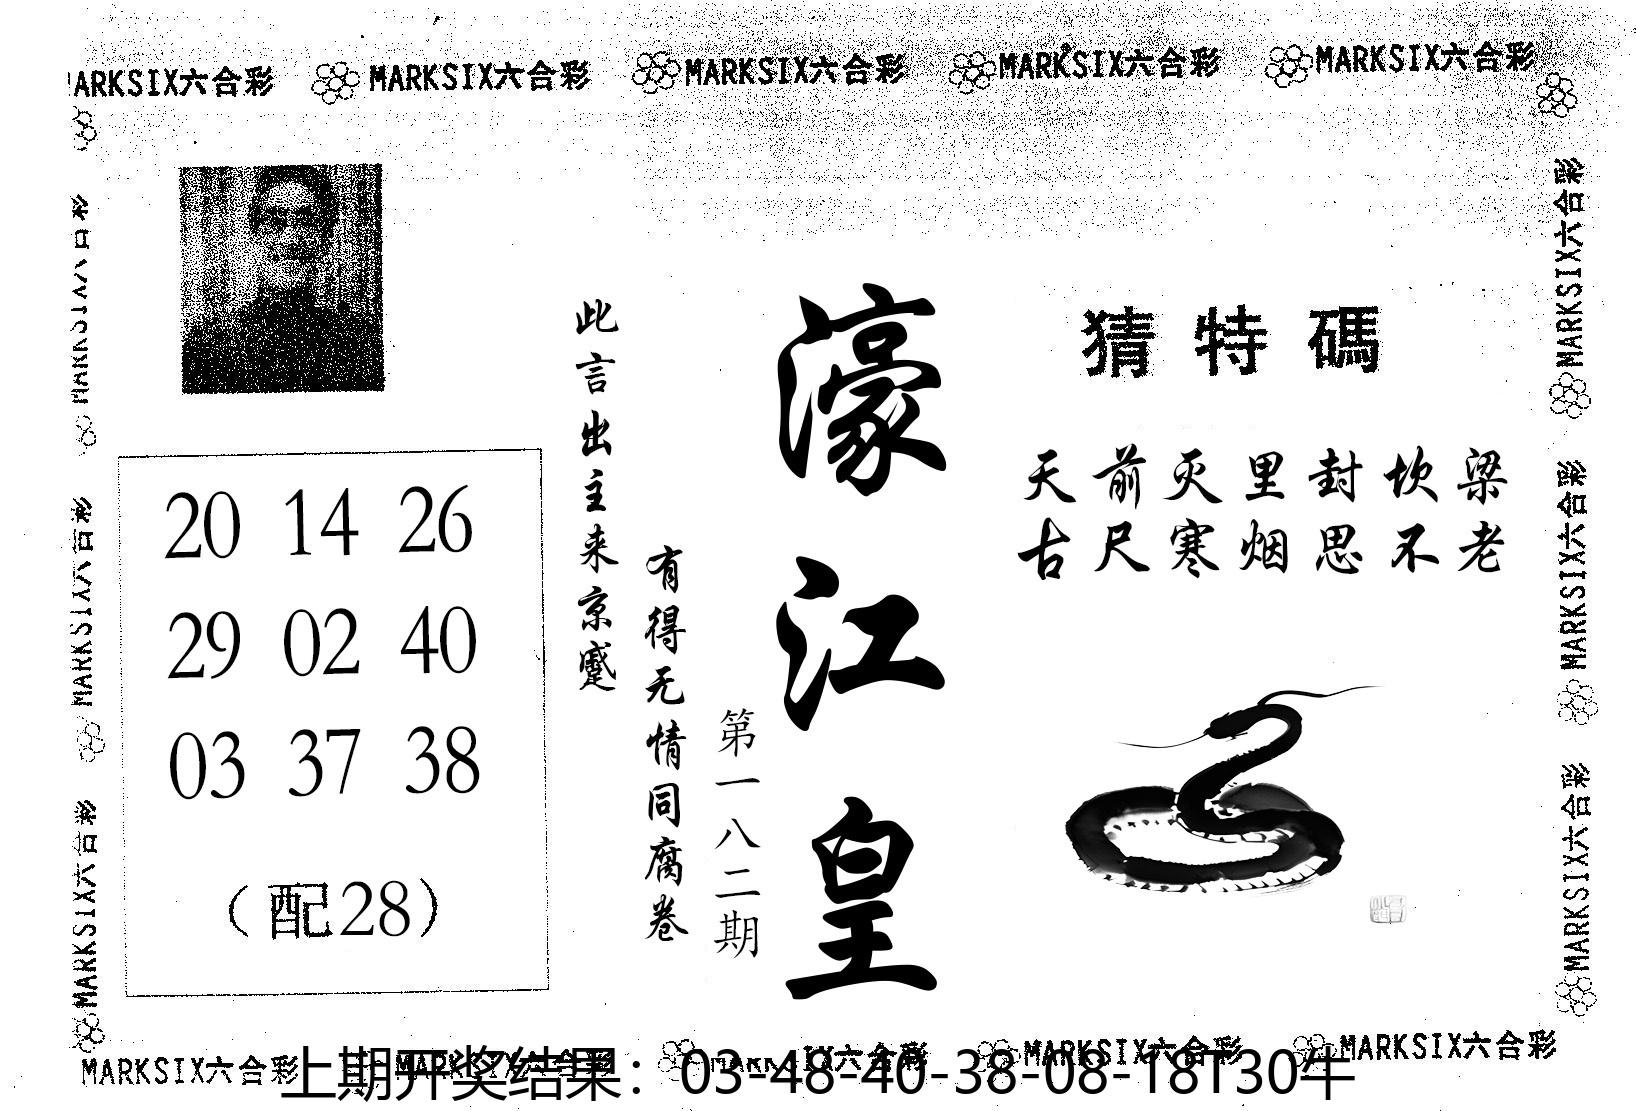 MARKSIX六合彩 MARKSIX六合彩 MARKSIX六合彩 MARKSIX六合彩 MARKSIX六合彩
猜特碼
天前灭里封坎梁
古尺寒烟思不老
濠江皇
第一八二期
此言出主来京蹙
有得无情同腐卷
20 14 26
29 02 40
03 37 38
（配28）
MARKSIX六合彩
MARKSIX六合彩
MARKSIX六合彩
MARKSIX六合彩
MARKSIX六合彩
MARKSIX六合彩
MARKSIX六合彩 MARKSIX六合彩 MARKSIX六合彩 MARKSIX六合彩 MARKSIX六合彩
上期开奖结果：03-48-40-38-08-18T30牛